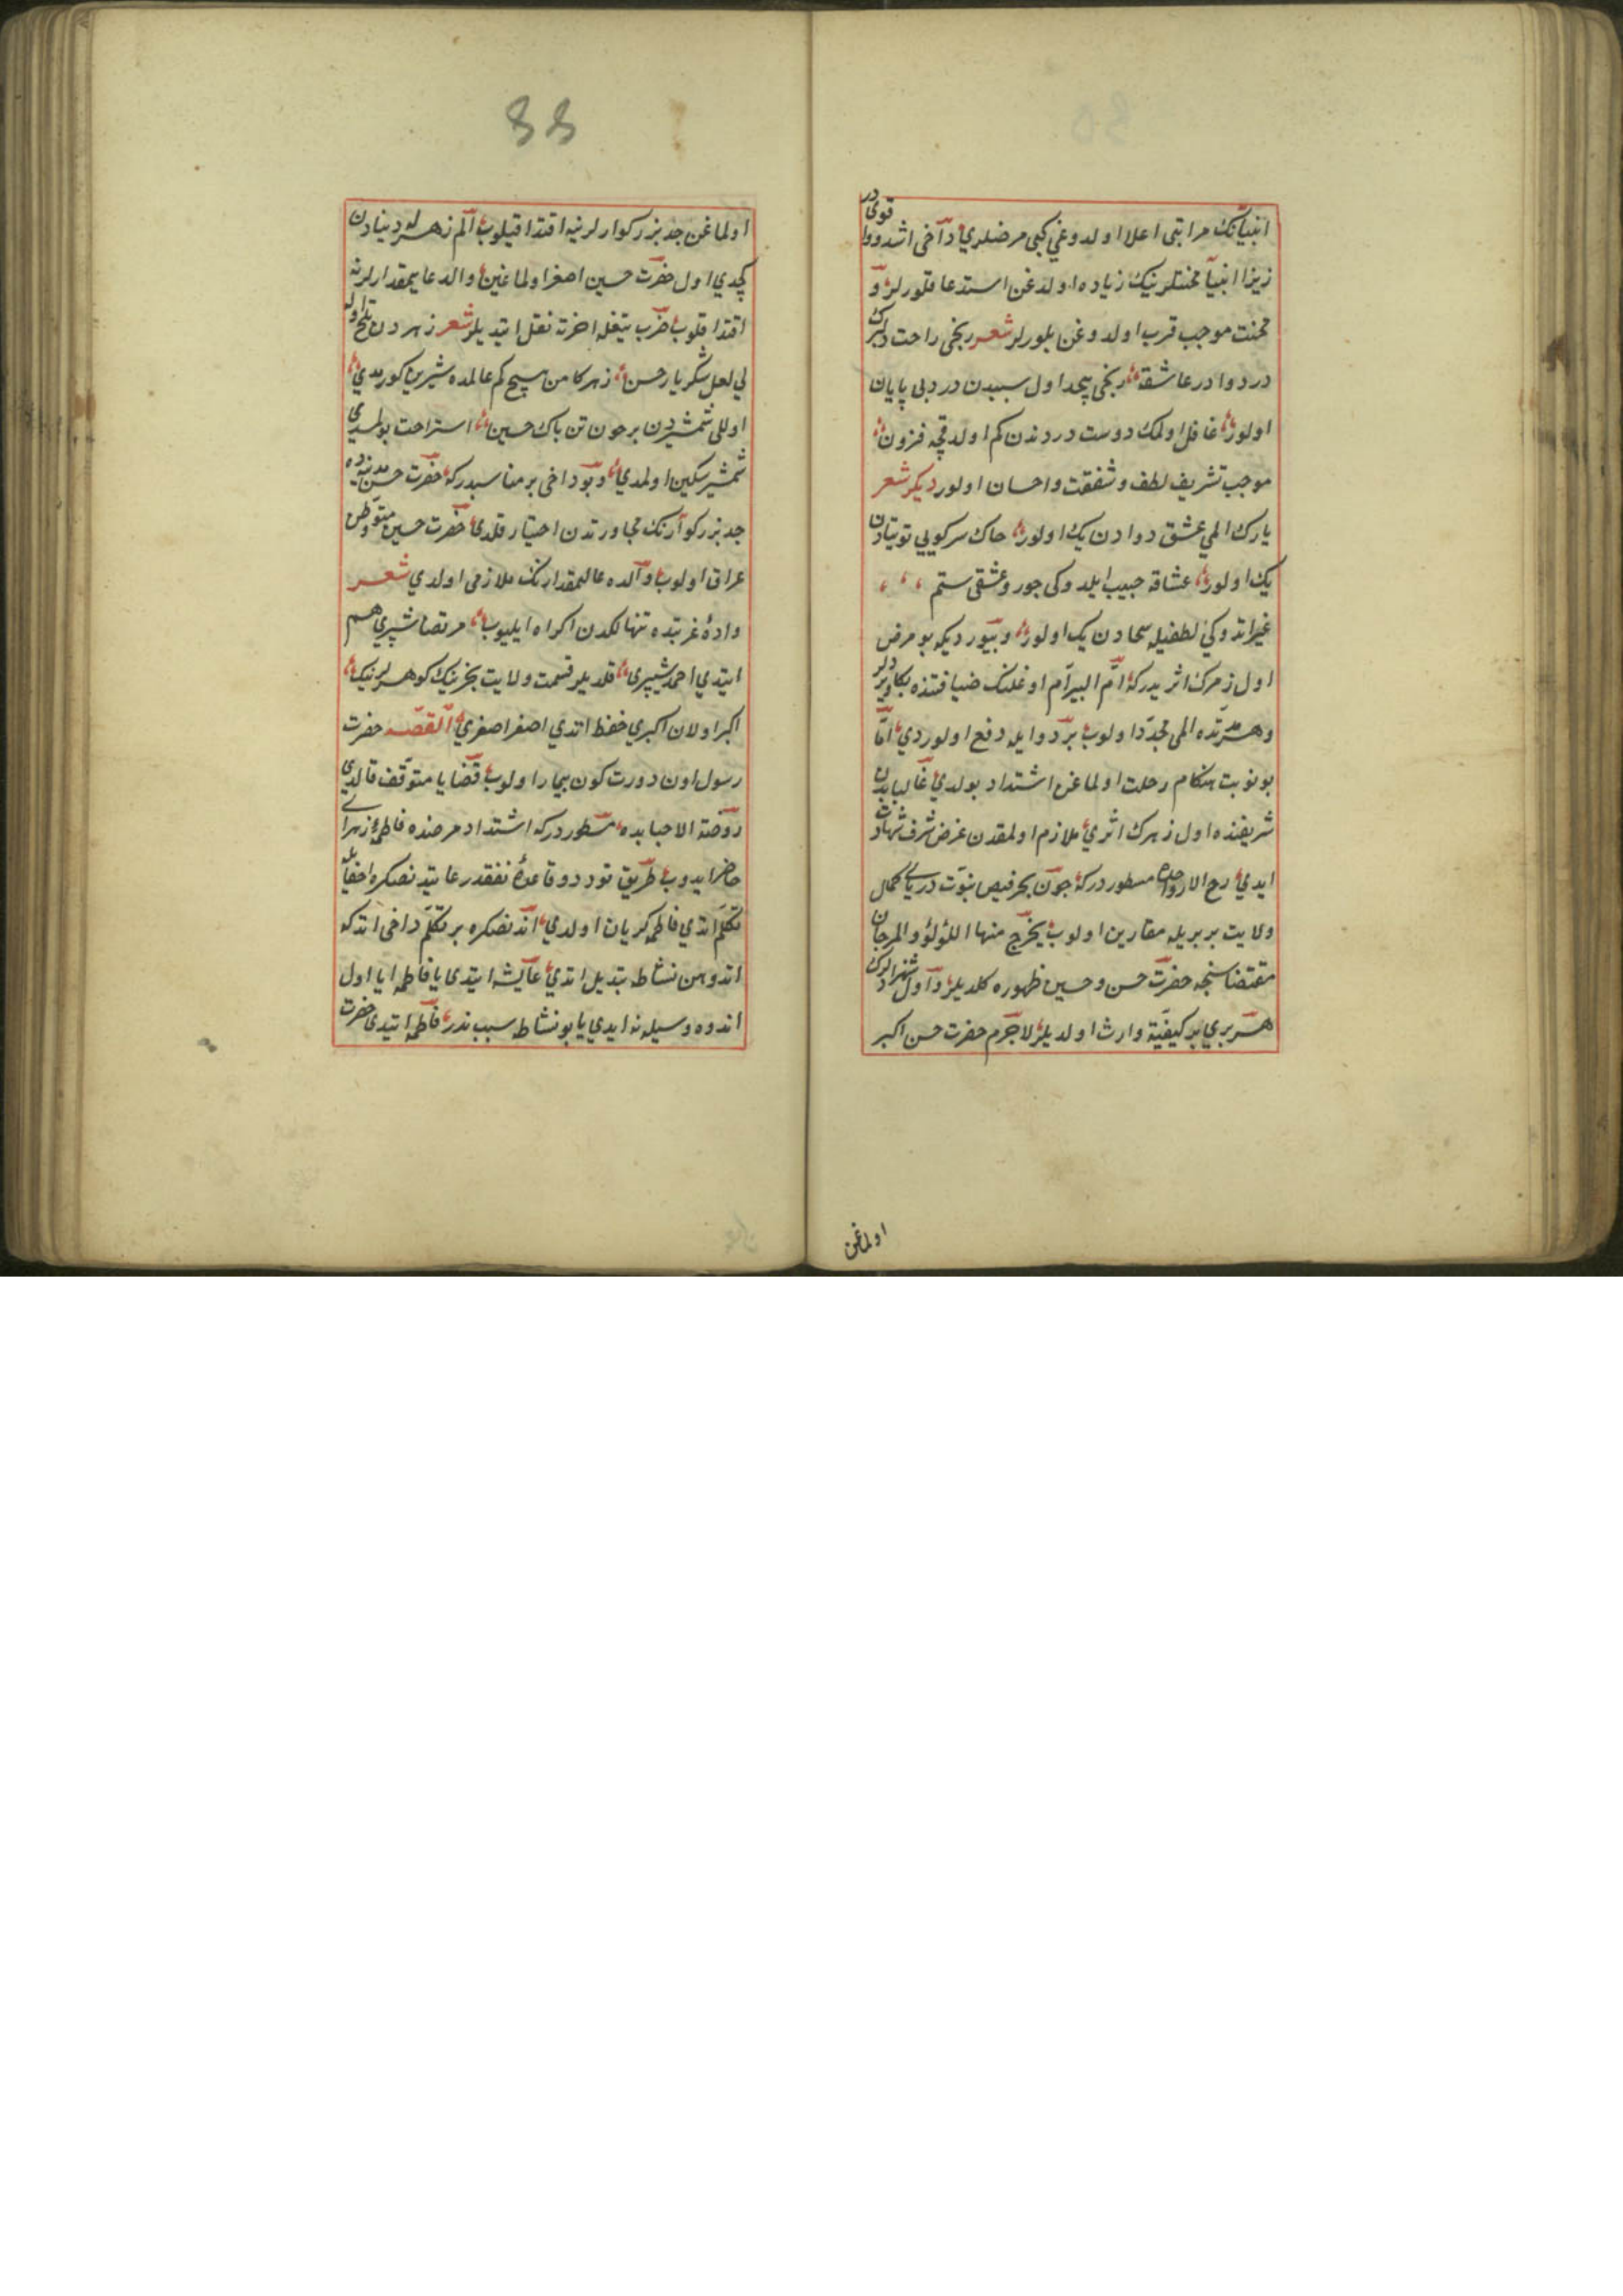 انبیانك مراتبی اعلا اولدوغی کبی مرضلری داخی اشد و اقوی در
زیرا انبیا محنتلرینك زیاده اولدغن استدعا قلورلر و
محنت موجب قرب اولدوغن بلورلر شعر رنجی راحت دلبرك
درد دوا در عاشقه رنجی بیحد اول سببدن دردی بی پایان
اولور غافل اولمك دوست دردندن کم اولدقچه فزون
موجب تشریف لطف و شفقت و احسان اولور دیکر شعر
یارك المی عشق دوادن یك اولور خاك سر کویی توتیادن
یك اولور عشاقه حبیب ایلدوکی جور و عشقی ستم
غیر اتدوکی لطفیله سخادن یك اولور و بیوردیکه بو مرض
اول زهرك اثریدر که ام البیرام اوغلنك ضیافتنده بکا ویردلر
و هر مرتده المی مجددا اولوب بر دوا ایله دفع اولوردی اما
بو نوبت هنکام رحلت اولماغن اشتداد بولدی غالبا بدن
شریفنده اول زهرك اثری ملازم اولمقدن غرض شرف شهادت
ایدی روح الارواحده مسطور در که چون بحر فیض نبوت دریای کمال
ولایت بربریله مقارین اولوب یخرج منها اللؤلؤ والمرجان
مقتضاسنجه حضرت حسن و حسین ظهوره کلدیلر و اول شهزادلرك
هر بری بر کیفیته وارث اولدیلر لاجرم حضرت حسن اکبر
اولماغن
اولماغن جد بزرکوارلرینه اقتدا قیلوب الم زهرله دنیادن
کچدی اول حضرت حسین اصغر اولماغین والد عالیمقدارلرنه
اقتدا قلوب ضرب تیغله اخرته نقل ایتدیلر شعر زهردن تلخ اولدی
لعل شکر یار حسن زهر کامن هیچ کم عالمده شیرین کورمدی
اولدی شمشیردن برخون تن پاك حسین استراحت بولمدی
شمشیر سکین اولمدی و بو داخی بر مناسبدر که حضرت حسن مدینه ده
جد بزرکوارنك مجاورتدن اختیار قلدی حضرت حسین متوطن
عراق اولوب والد عالیمقدارنك ملازمی اولدی شعر
وادئ غربتده تنهالکدن اکراه ایلیوب مرتضا شپری هم
ایتدی احمد شبیری قلدیلر قسمت ولایت بحرینك کوهرلرنیك
اکبر اولان اکبری حفظ اتدی اصغر اصغری القصه حضرت
رسول اون دورت کون بیمار اولوب قضایا متوقف قالدی
روضة الاحبابده مسطور در که اشتداد مرضنده فاطمۀ زهرای
حاضر ایدوب طریق تودد و قاعدۀ تفقد رعایتدنصکره اخفایله
تکلم اتدی فاطمه کریان اولدی اندنصکره بر تکلم داخی اتدی که
اندوهن نشاطه تبدیل اتدی عایشه ایتدی یا فاطمه ایا اول
اندوه وسیله نه ایدی یا بو نشاطه سبب ندر فاطمه ایتدی حضرت